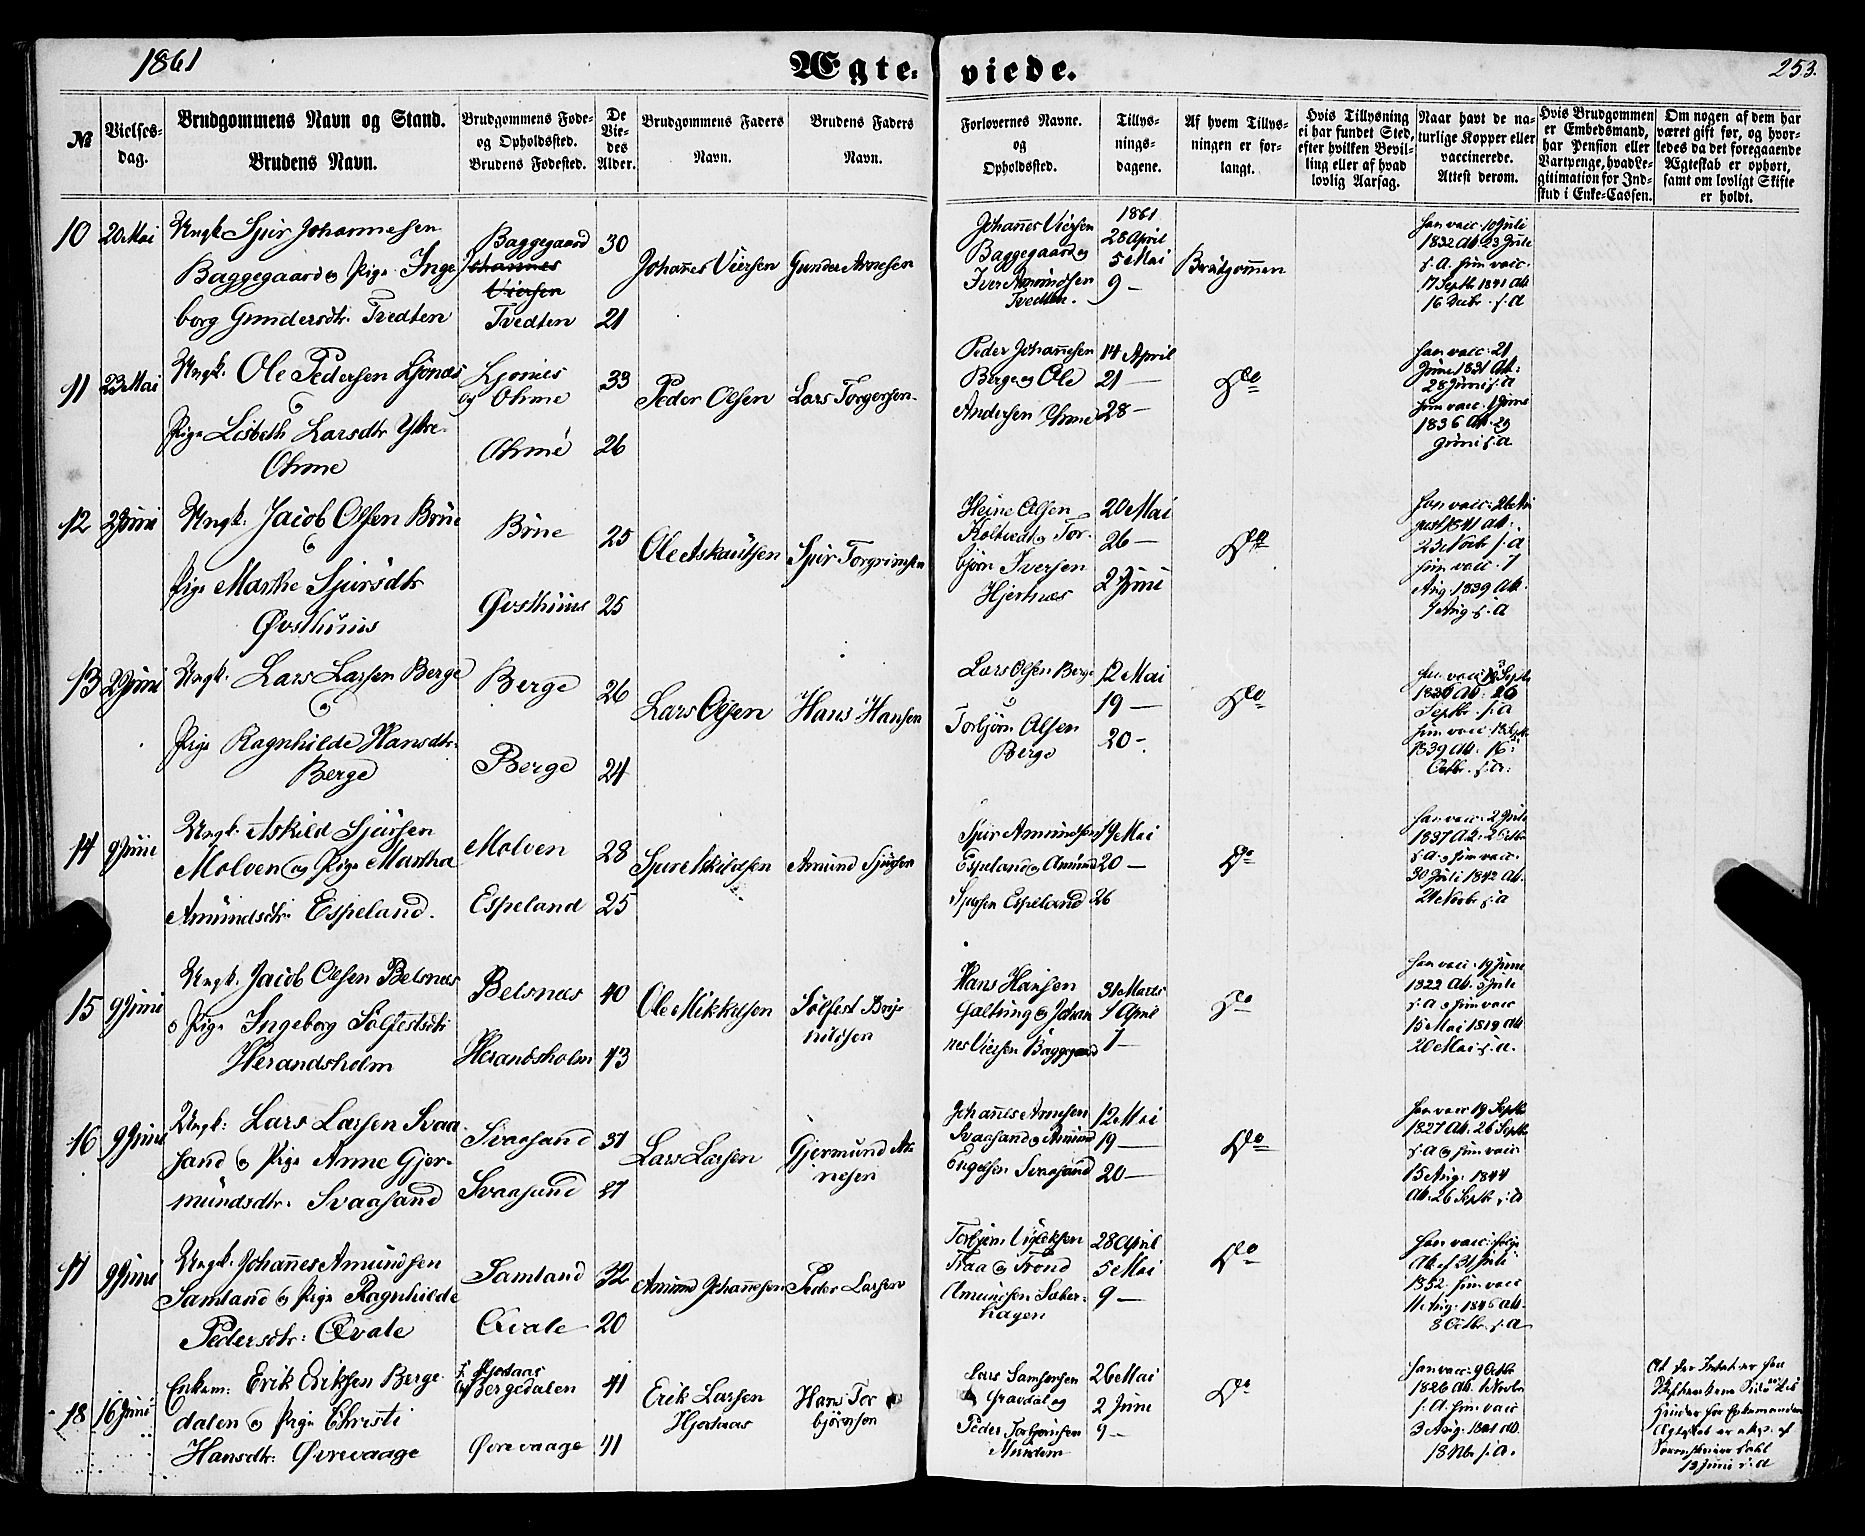 1861
Ægte-
viede.
253.
№
Vielses-
dag.
Brudgommens Navn og Stand.
Brudens Navn.
Brudgommens Føde-
og Opholdssted.
Brudens Fødested.
De
Vie-
des
Alder.
Brudgommens Faders
Navn.
Brudens Faders
Navn.
Forlovernes Navne.
og
Opholdssted.
Tillys-
nings-
dagene.
Af hvem Tillys-
ningen er for-
langt.
Hvis Tillysning
ei har fundet Sted,
efter hvilken Bevil-
ling eller af hvad
lovlig Aarsag.
Naar havt de na-
turlige Kopper eller
vaccinerede.
Attest derom.
Hvis Brudgommen
er Embedsmand,
har Pension eller
Vartpenge, hvad Le-
gitimation for Ind-
skud i Enke-Cassen.
Om nogen af dem har
været gift før, og hvor-
ledes da det foregaaende
Ægteskab er ophørt,
samt om lovligt Skifte
er holdt.
10
20 Mai
Ungk. Sjur Johannesen
Baggegaard og Pige Inge
borg Gundersdtr. Tvedten
Baggegaard
Johannes
Viersen
Tvedten
30
21
Johannes Viersen
Gunder Arnesen
Johannes Viersen
Baggegaard og
Iver Amundsen
Tvedten.
1861
28 April
5 Mai
9 —
Brudgommen
han vacc. 10 Juli
1832 Att. 23 Juli
s. A. hun vacc.
17 Septb. 1841 Att.
16 Decbr. s. A
11
23 Mai
Ungk. Ole Pedersen Ljonæs
og
Pige Lisbeth Larsdtr Ytre-
Ohme
Ljonæs
og Ohme
Ohme
33
26
Peder Olsen
Lars Torgersen
Peder Johannesen
Berge og Ole
Andersen Ohme
14 April
21 —
28 —
Do
han vacc. 21
Juni 1831 Att.
28 Juni s. A
hun vacc. 1 Juni
1836 Att. 29
Juni s. A
12
2 Juni
Ungk. Jacob Olsen Brue
og
Pige Marthe Sjursdtr
Øvsthuus
Brue
Øvsthuus
25
25
Ole Askautsen
Sjur Torgrimsen
Heine Olsen
Koltvedt og Tor-
bjørn Iversen
Hjertnæs
20 Mai
26 —
2 Juni
Do
han vacc. 26 Au
gust 1841 Att.
23 Novbr s. A
hun vacc. 7
Aug. 1839 Att.
7 Aug. s. A
13
2 Juni
Ungk. Lars Larsen Berge
og
Pige Ragnhilde Hansdtr.
Berge
Berge
Berge
26
24
Lars Olsen
Hans Hansen
Lars Olsen Berge
og
Torbjørn Olsen
Berge
12 Mai
19 —
20 —
Do
Septbr. s. A
1839 Att. 16
Octbr. s. A.
14
9 Juni
Ungk. Askild Sjursen
Molven og Pige Martha
Amundsdtr. Espeland.
Molven
Espeland
28
25
Sjur Askildsen
Amund Sjursen
Sjur Amundsen
Espeland og Amund
Sjursen Espeland
19 Mai
20 —
26
Do
han vacc. 2 Juli
s. A. og hun vacc.
30 Juli 1842 Att.
24 Novbr s. A
15
9 Juni
Ungk. Jacob Olsen Belsnæs
og Pige Ingeborg Solfestsdtr
Herandsholm
Belsnæs
Herandsholm
40
43
Ole Mikkelsen
Solfest Bryn-
hildsen
Hans Hansen
Galtung og Johan
nes Viersen Baggegaard
31 Marts
1 April
7 —
Do
han vacc. 19 Juni
1822 Att. 3 Juli
s. A. og hun vacc
15 Mai 1819 Att.
20 Mai s. A.
16
9 Juni
Ungk: Lars Larsen Svaa-
sand og Pige Anne Gjer-
mundsdtr. Svaasand
Svaasand
Svaasand
37
27
Lars Larsen
Gjermund Ar-
nesen
Johannes Arnesen
Svaasand og Amund
Engelsen Svaasand
12 Mai
19 —
20 —
Do
han vacc 19 Septb.
1827 Att. 26 Septb.
s. A og hun vacc
15 Aug. 1844
Att. 26 Septbr s. A
17
9 Juni
Ungk. Johannes Amundsen
Samland og Pige Ragnhilde
Pedersdtr: Qvale
Samland
Qvale
32
20
Amund Johannesen
Peder Larsen
Traa og Trond
Amundsen Saker-
hagen
28 April
5 Mai
9 —
Do
han vacc: følge
Att. af 31 Juli
1852 hun vacc
11 Aug. 1846 Att.
8 Octbr. s. A
18
16 Juni
Enkem: Erik Eriksen Berge-
dalen og Pige Christi
Hansdtr: Øvrevaage
Hjortaas
og Bergedalen
Øvrevaage
41
41
Erik Larsen
Hjortaas
Hans Tor
bjørnsen
Lars Samsonsen
Gravdal og
Peder Torbjørnsen
26 Mai
2 Juni
9 —
Do
han vacc. 9 Octbr
1826 Att. 1 Novbr
s. A. hun vacc
s. A.
At der Intet er hen
13 Juni s. A